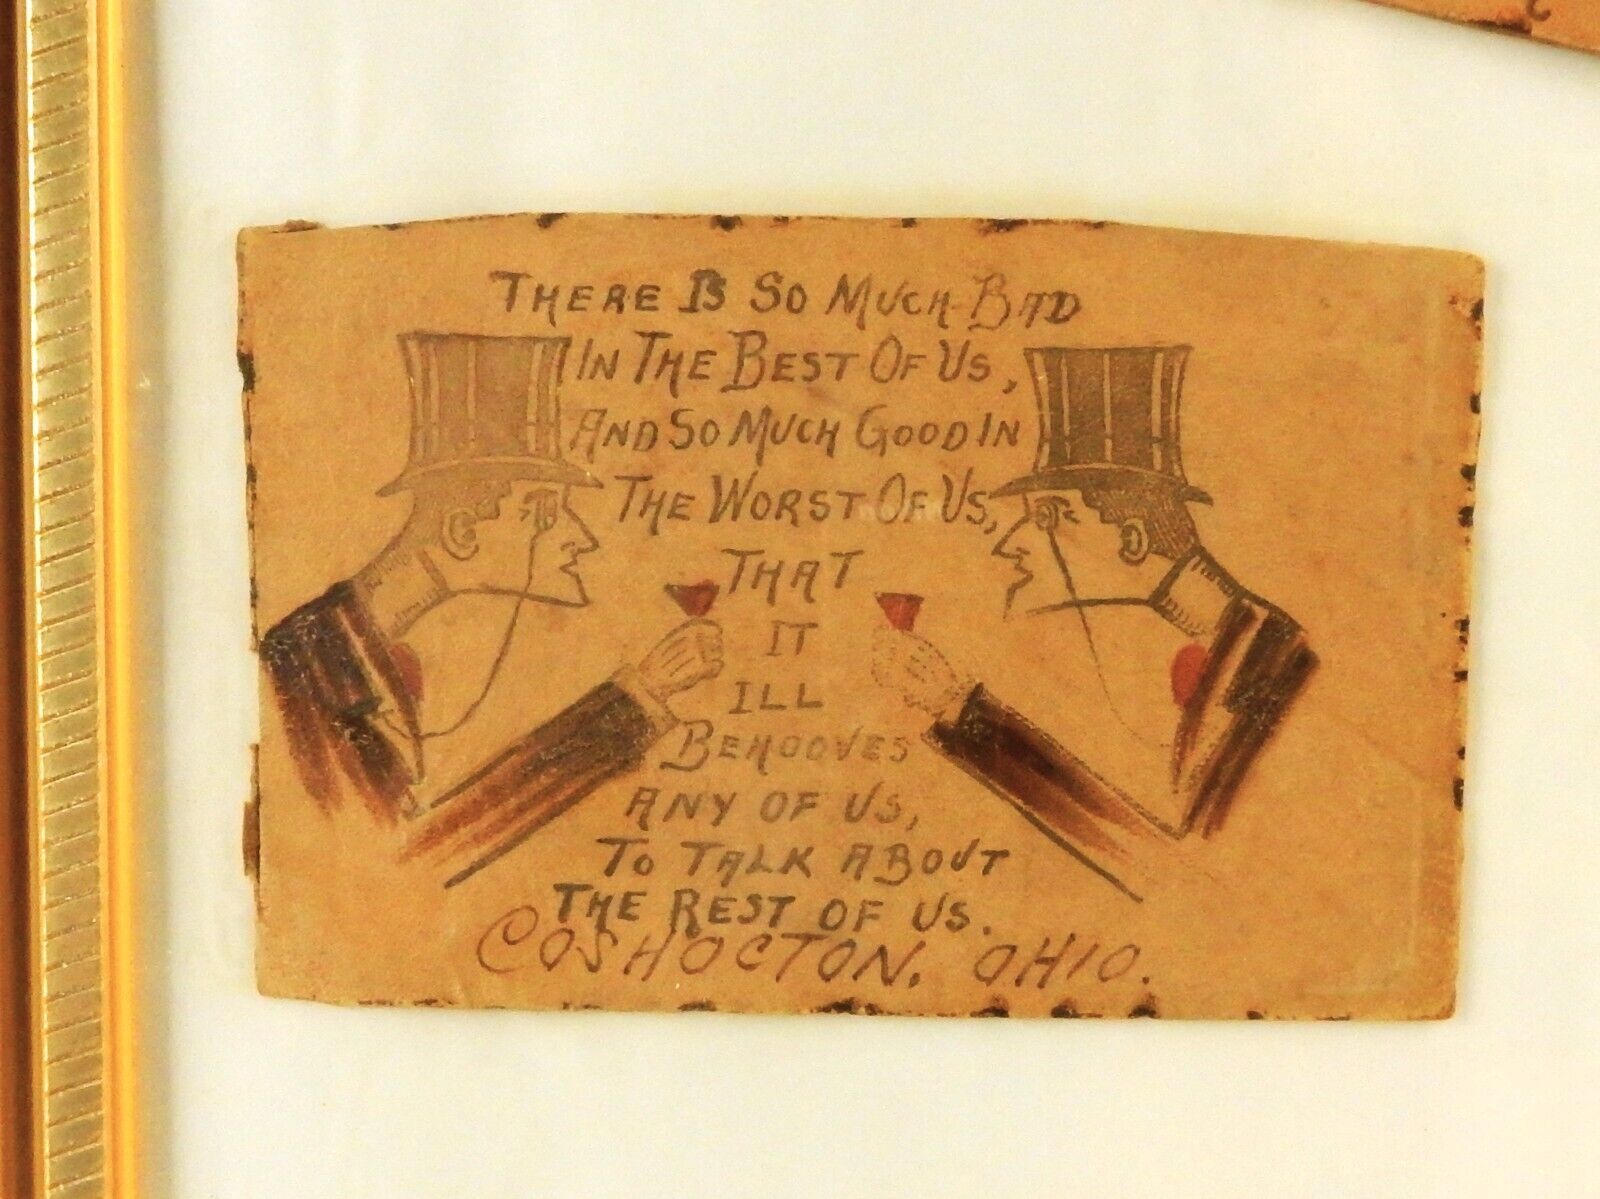 THERE IS SO MUCH BAD
IN THE BEST OF US,
AND SO MUCH GOOD IN
THE WORST OF US,
THAT
IT
ILL
BEHOOVES
ANY OF US,
TO TALK ABOUT
THE REST OF US.
COSHOCTON, OHIO.